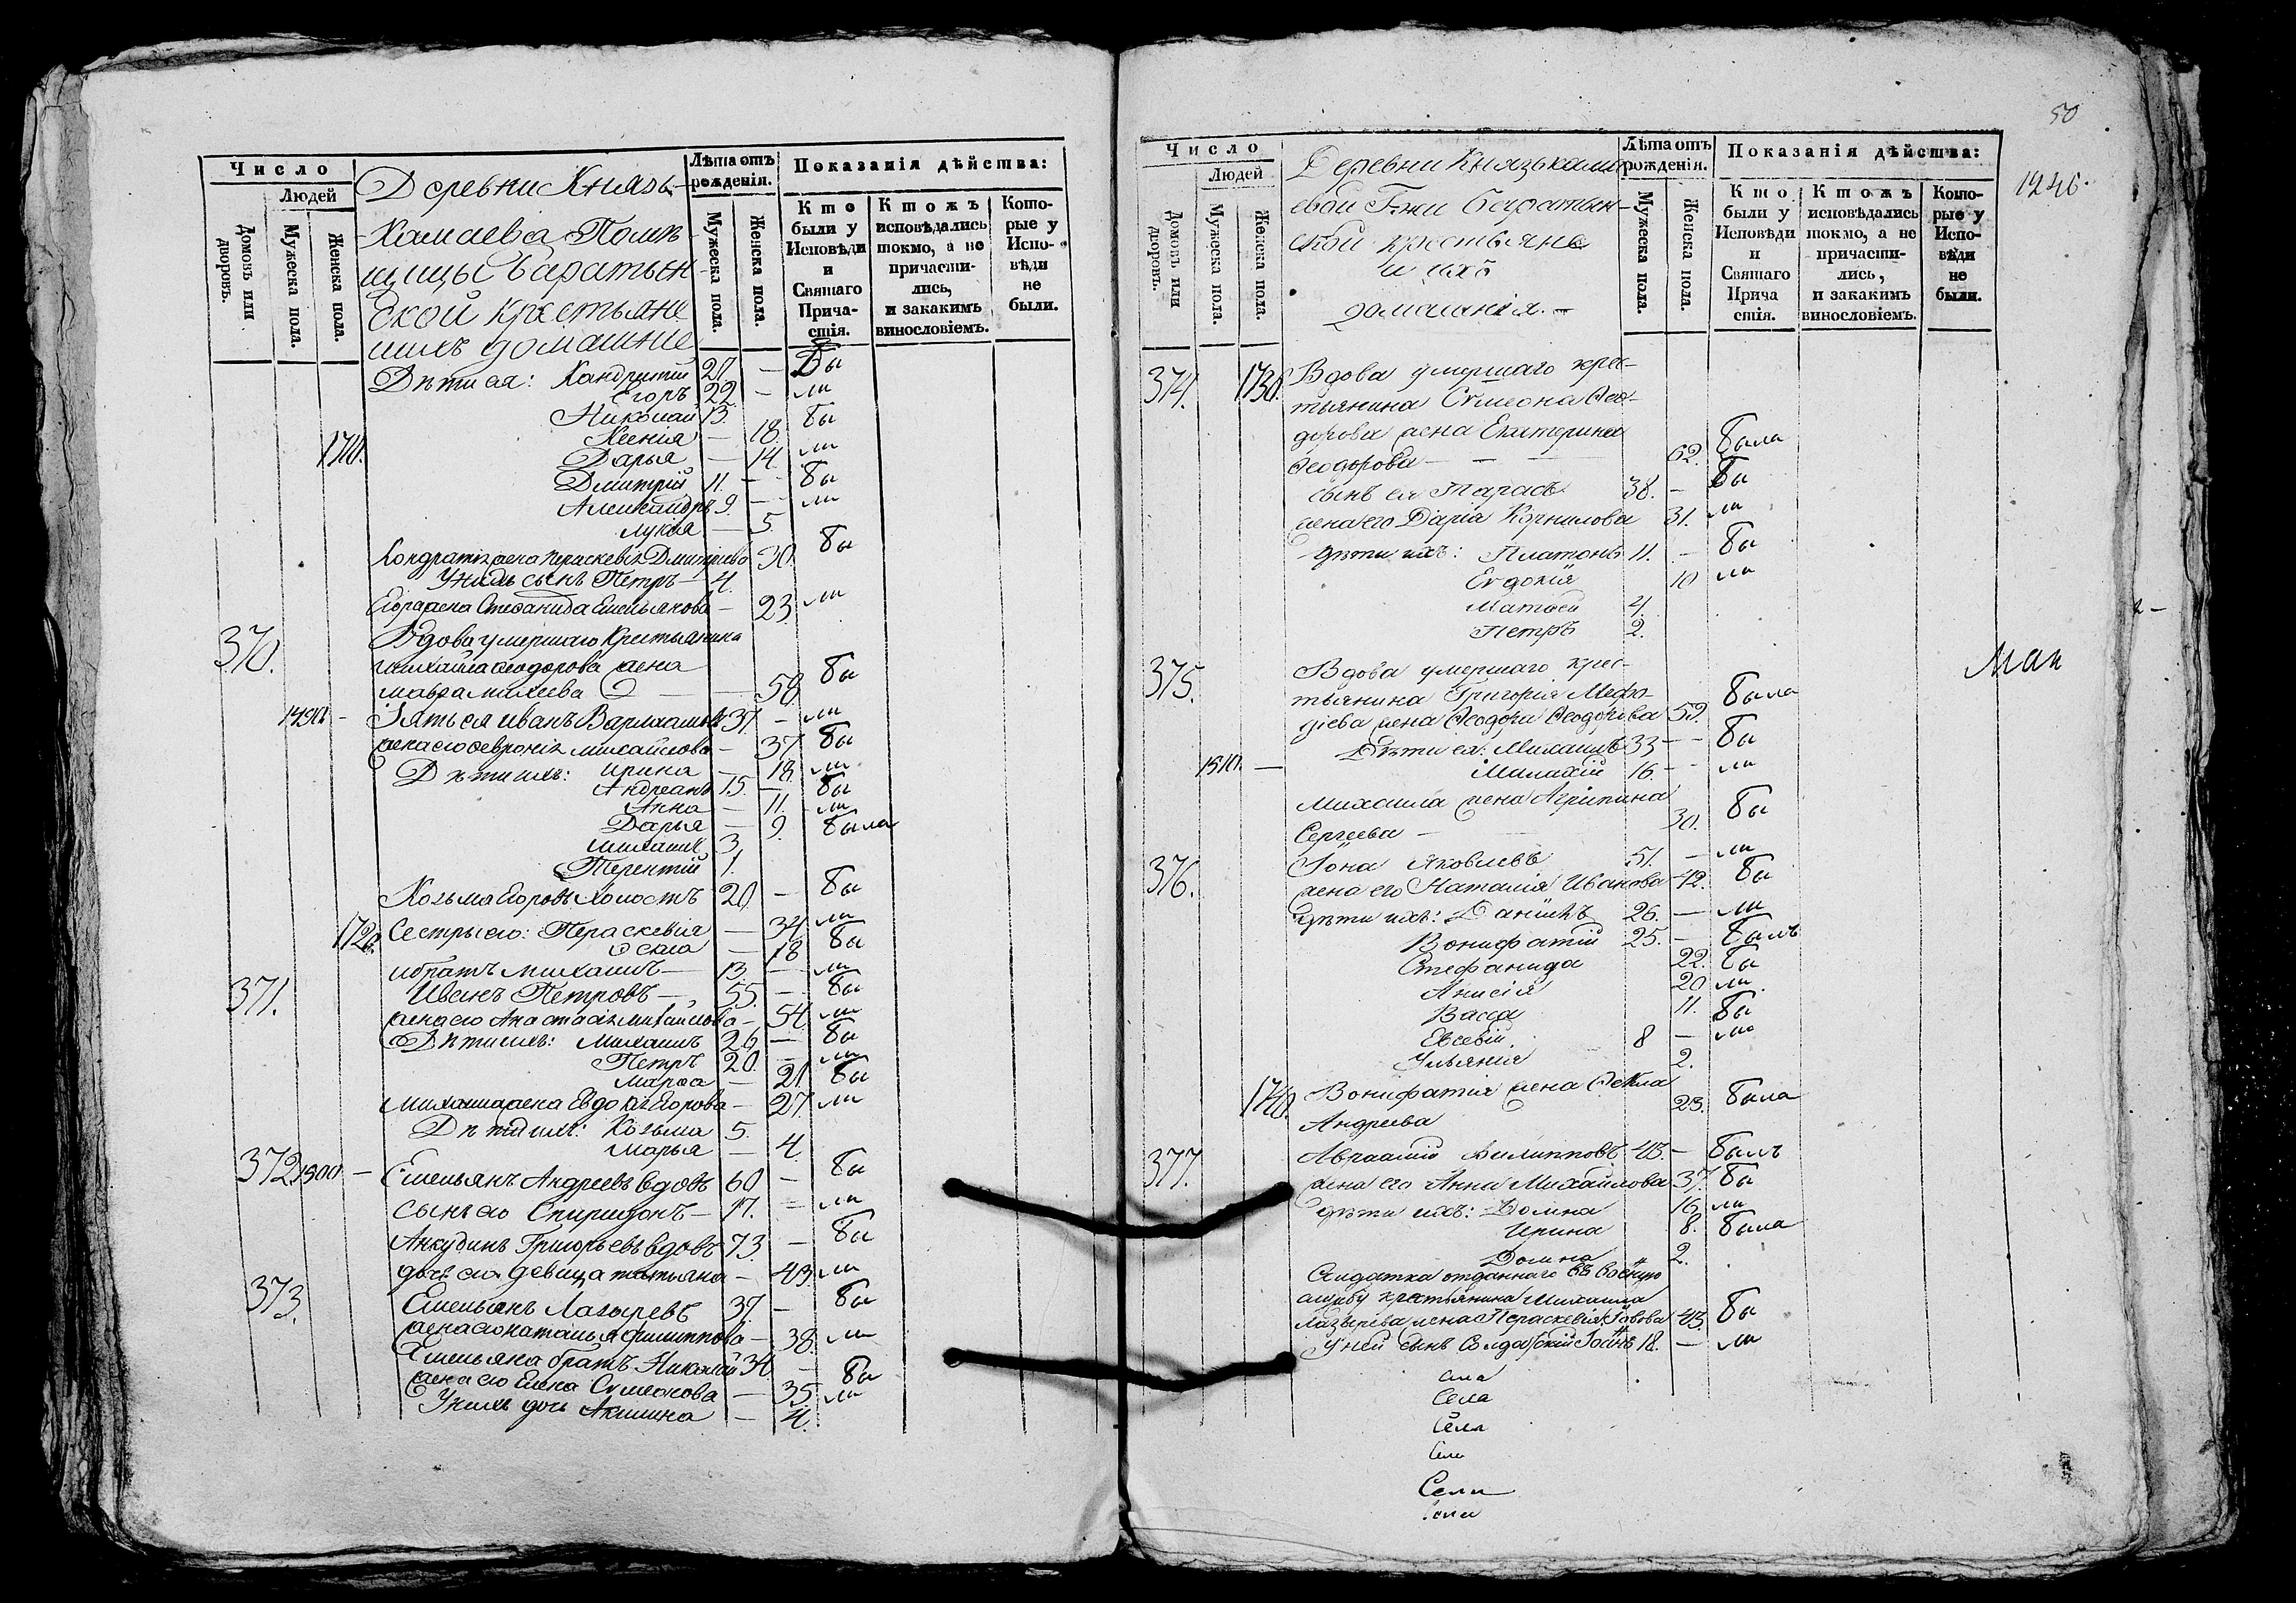 Число
Людей
Домовъ или дворовъ.
Мужеска пола.
Женска пола.
Деревни Князь-
Камаева Помѣ-
щицы Баратын-
ской крестьяне
ихъ домашніе
Лѣта отъ рожденія.
Мужеска пола.
Женска пола.
Показанія дѣйства:
Кто были у Исповѣди и Святаго Прича-стія.
Ктожъ исповѣдались токмо, а не причасти-лись, и закакимъ винословіемъ.
Кото-рые у Испо-вѣди не были.
Дѣти ея: Кандратій 27 — Бы
Егоръ 22 — ли
Николай 13. бы
Ксенія — 18.
1710. Дарья — 14. ли
Дмитрій 11. — бы
Александръ 9. — ли
Лукія — 5.
Кондратія жена Параскевія Дмитріева 30. бы
У нихъ сынъ Петръ — 4.
Егора жена Стефанида Емельянова — 23. ли
370. Вдова умершаго Крестьянина
Михайла Феодорова жена
Мавра Михеева — 58. бы
1490 — Зять ея Иванъ Варлаамовъ 37. — ли
жена его Феврониія Михайлова — 37 бы
Дѣти ихъ: Ирина — 18. ли
Андреанъ 15. — бы
Анна — 11. ли
Дарья — 9. была
Михаилъ 3.
Терентій 1.
Козьма Егоровъ Холостъ 20 — бы
1720. Сестры его: Параскевія — 34 ли
Фекла — 18 бы
и братъ Михаилъ — 13. — ли
371. Иванъ Петровъ — 55. — бы
жена его Анастасія Михайлова — 54 ли
Дѣти ихъ: Михаилъ 26 — бы
Петръ 20. — ли
Марфа — 21 бы
Михаила жена Евдокія Егорова — 27 ли
Дѣти ихъ: Козьма 5.
Марья — 4.
372. 1500 — Емельянъ Андреевъ вдовъ 60 — бы
сынъ его Спиридонъ — 17. — ли
Анкудинъ Григорьевъ вдовъ 73 — бы
дочь его девица Татьяна — 43. ли
373. Емельянъ Лазаревъ 37 — бы
жена его Наталья Филиппова — 38. ли
Емельяна братъ Николай 34 —
жена его Елена Симеонова — 35 бы
У нихъ дочь Акилина — 4. ли
50
1246.
Число
Людей
Домовъ или дворовъ.
Мужеска пола.
Женска пола.
Деревни Князькама
евой Г.жи Баратын-
ской крестьяне
и ихъ
домашнія. —
Лѣта отъ рожденія.
Мужеска пола.
Женска пола.
Показанія дѣйства:
Кто были у Исповѣди и Святаго Прича стія.
Ктожъ исповѣдались токмо, а не причасти-лись, и закакимъ винословіемъ.
Кото-рые у Испо-вѣди не были.
374. 1730. Вдова умершаго крес-
тьянина Симеона Фео-
дорова жена Екатерина
Феодорова — — 62. была
сынъ ея Тарасъ 38. — бы
жена его Дарія Корнилова 31. ли
дѣти ихъ: Платонъ 11. — бы
Евдокія 10 ли
Матвей 4.
Петръ 2.
375. Вдова умершаго крес-
тьянина Григорія Мефо-
діева жена Феодора Феодорова 59. была
Дѣти ея: Михаилъ 33 — — бы
1510. — Малахій 16 — — ли
Михаила жена Агрипина
Сергеева — 30. бы
376. Іона Яковлевъ 51. — ли
жена его Наталія Иванова 42. бы
дѣти ихъ: Даніилъ 26. — ли
Вонифатій 25. — былъ
Стефанида 22. бы
Анисія 20 ли
Васса 11. бы
Евсевій 8 — ли
Ульянія 2.
1740. Вонифатія жена Фекла
Андреева 23. была
377. Авраамій Филипповъ 45. — былъ
жена его Анна Михайлова 37. бы
дѣти ихъ: Домна 16 ли
Ирина 8. была
Домна 2.
Солдатка отданнаго въ военную
службу крестьянина Михаила
Лазырева жена Параскевія Іовова 43. бы
У ней сынъ Солдатскій 18. — ли
Мак
Села
Села
Села
Села